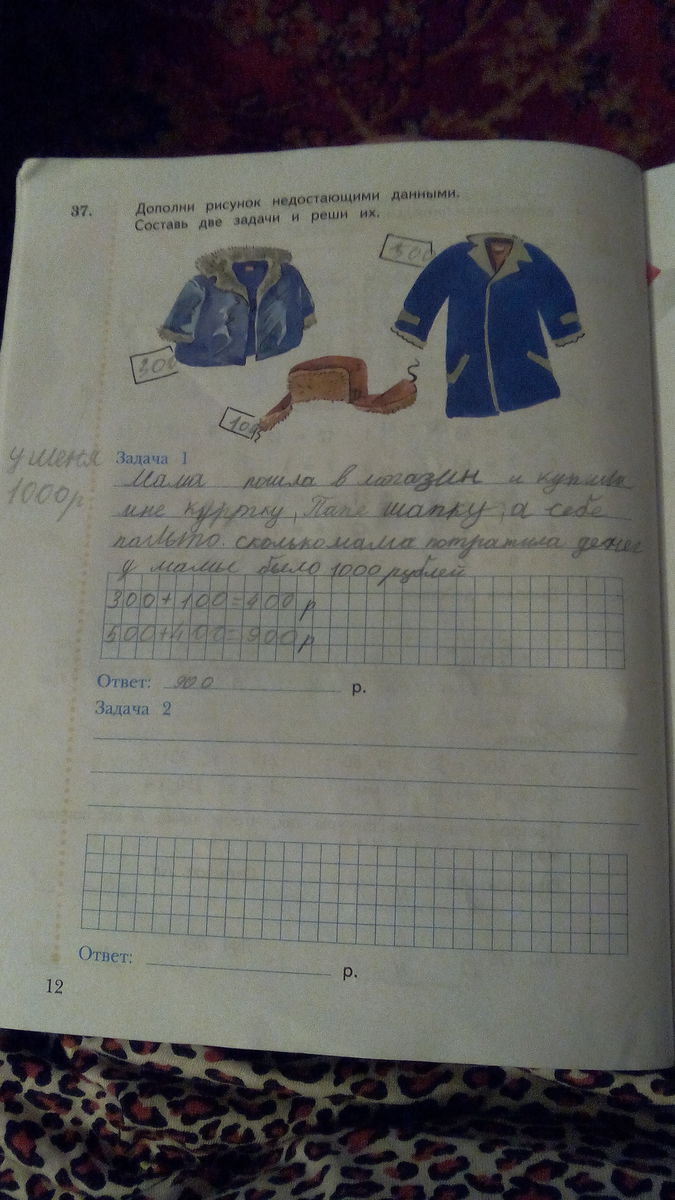 37.
Дополни рисунок недостающими данными.
Составь две задачи и реши их.
500
300
100
у меня
1000р
Задача 1
Мама пошла в могазин и купила
мне куртку, Папе шапку, а себе
пальто. сколько мама потратила денег
у мамы было 1000 рублей
300+100=400 р
500+400=900 р
Ответ: 900 р.
Задача 2
Ответ: р.
12